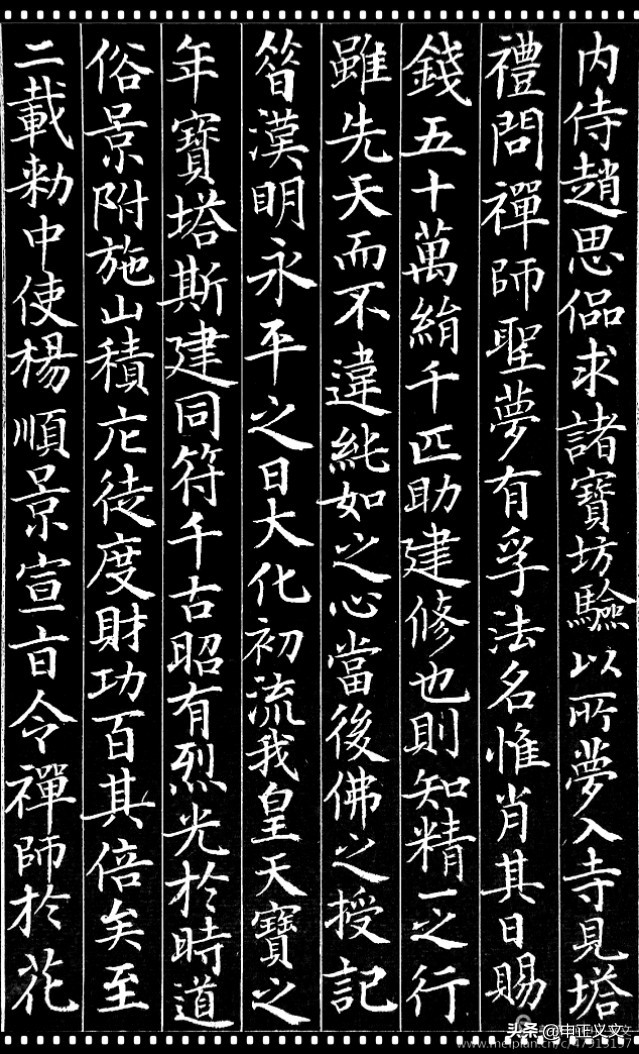 内侍趙思偘求諸寶坊驗以所夢入寺見塔
禮問禪師聖夢有孚法名惟肖其日賜
錢五十萬絹千匹助建修也則知精一之行
雖先天而不違純如之心當後佛之授記
昔漢明永平之日大化初流我皇天寶之
年寶塔斯建同符千古昭有烈光於時道
俗景附施山積庀徒度財功百其倍矣至
二載勑中使楊順景宣旨令禪師於花
头条 @中正义文
www.meipian.cn/c/47913157